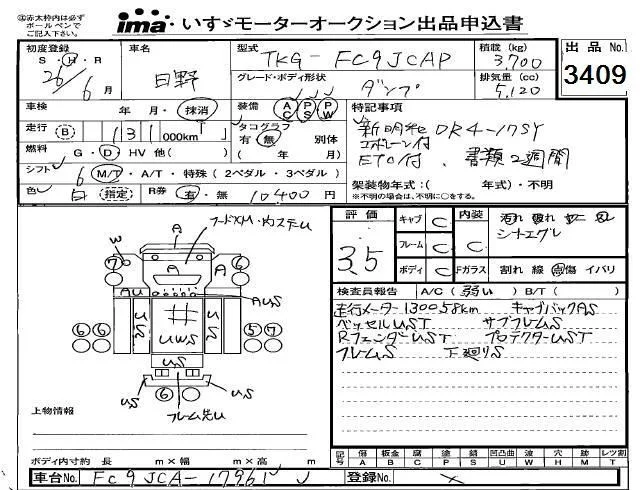 ㊟赤太枠内は必ず
ボールペンで
ご記入下さい。
ima いすゞモーターオークション出品申込書
初度登録 S・H・R 26年 6月
車名 日野
型式 TKG-FC9JCAP
積載(kg) 3,700
出品No. 3409
グレード・ボディ形状 ダンプ
排気量(cc) 5,120
車検 年 月・抹消
装備 AC PS PW
特記事項
走行 (B) 131 000km
タコグラフ 有・無 別体 ( 年 月)
新明和 DR4-17SY
コボレーン付
ETC付、書類2週間
燃料 G・D・HV 他( )
シフト 6 M/T・A/T・特殊(2ペダル・3ペダル)
色 白 (指定) R券 有・無 10400円
架装物年式:( 年式)・不明
※不明の場合は、不明に○をする。
フードXM・内ステU
A
W
⑦ A ⑥
A
AU AUS
⑥⑥ UWS ⑤⑦
US
US ⑥ US
フレーム先U
上物情報
ボディ内寸約 長 m×幅 m×高 m
車台No. FC9JCA-17961
評価 3.5
キャブ C 内装 C
フレーム C
ボディ C Fガラス 割れ 線 点傷 イバリ
シートエグレ
検査員報告 A/C(弱い) B/T( )
走行メーター130058km キャブバックAS
ベッセルUST サブフレームS
RフェンダーUST プロテクターUST
フレームS 下廻りS
記号 傷 A 板金 B 腐 C 塗 P 錆 S 凹凸曲 U 波 W 穴 H 跡 M レツ割 T
登録No. ×